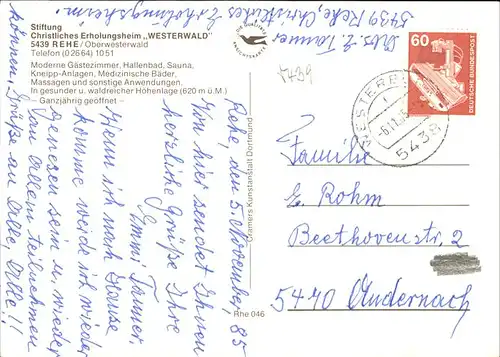 Stiftung
Christliches Erholungsheim „WESTERWALD"
5439 REHE/Oberwesterwald
Telefon (02664) 1051
Moderne Gästezimmer, Hallenbad, Sauna,
Kneipp-Anlagen, Medizinische Bäder,
Massagen und sonstige Anwendungen.
In gesunder u. waldreicher Höhenlage (620 m ü.M.)
– Ganzjährig geöffnet –
Rehe, den 5. November 85
Von hier sendet Ihnen
herzliche Grüße Ihre
Emmi Tanner,
Wenn ich nach Hause
komme werde ich wieder
genesen sein u. wieder
von Allem teilnehmen
können, Grüße an Alle, Alle!!
5439 Rehe, Christliches Erholungsheim.
Cramers Kunstanstalt Dortmund
Rhe 046
5439
60
DEUTSCHE BUNDESPOST
-6.11.85
5438
Familie
E. Rohm
Beethovenstr. 2
5470 Andernach